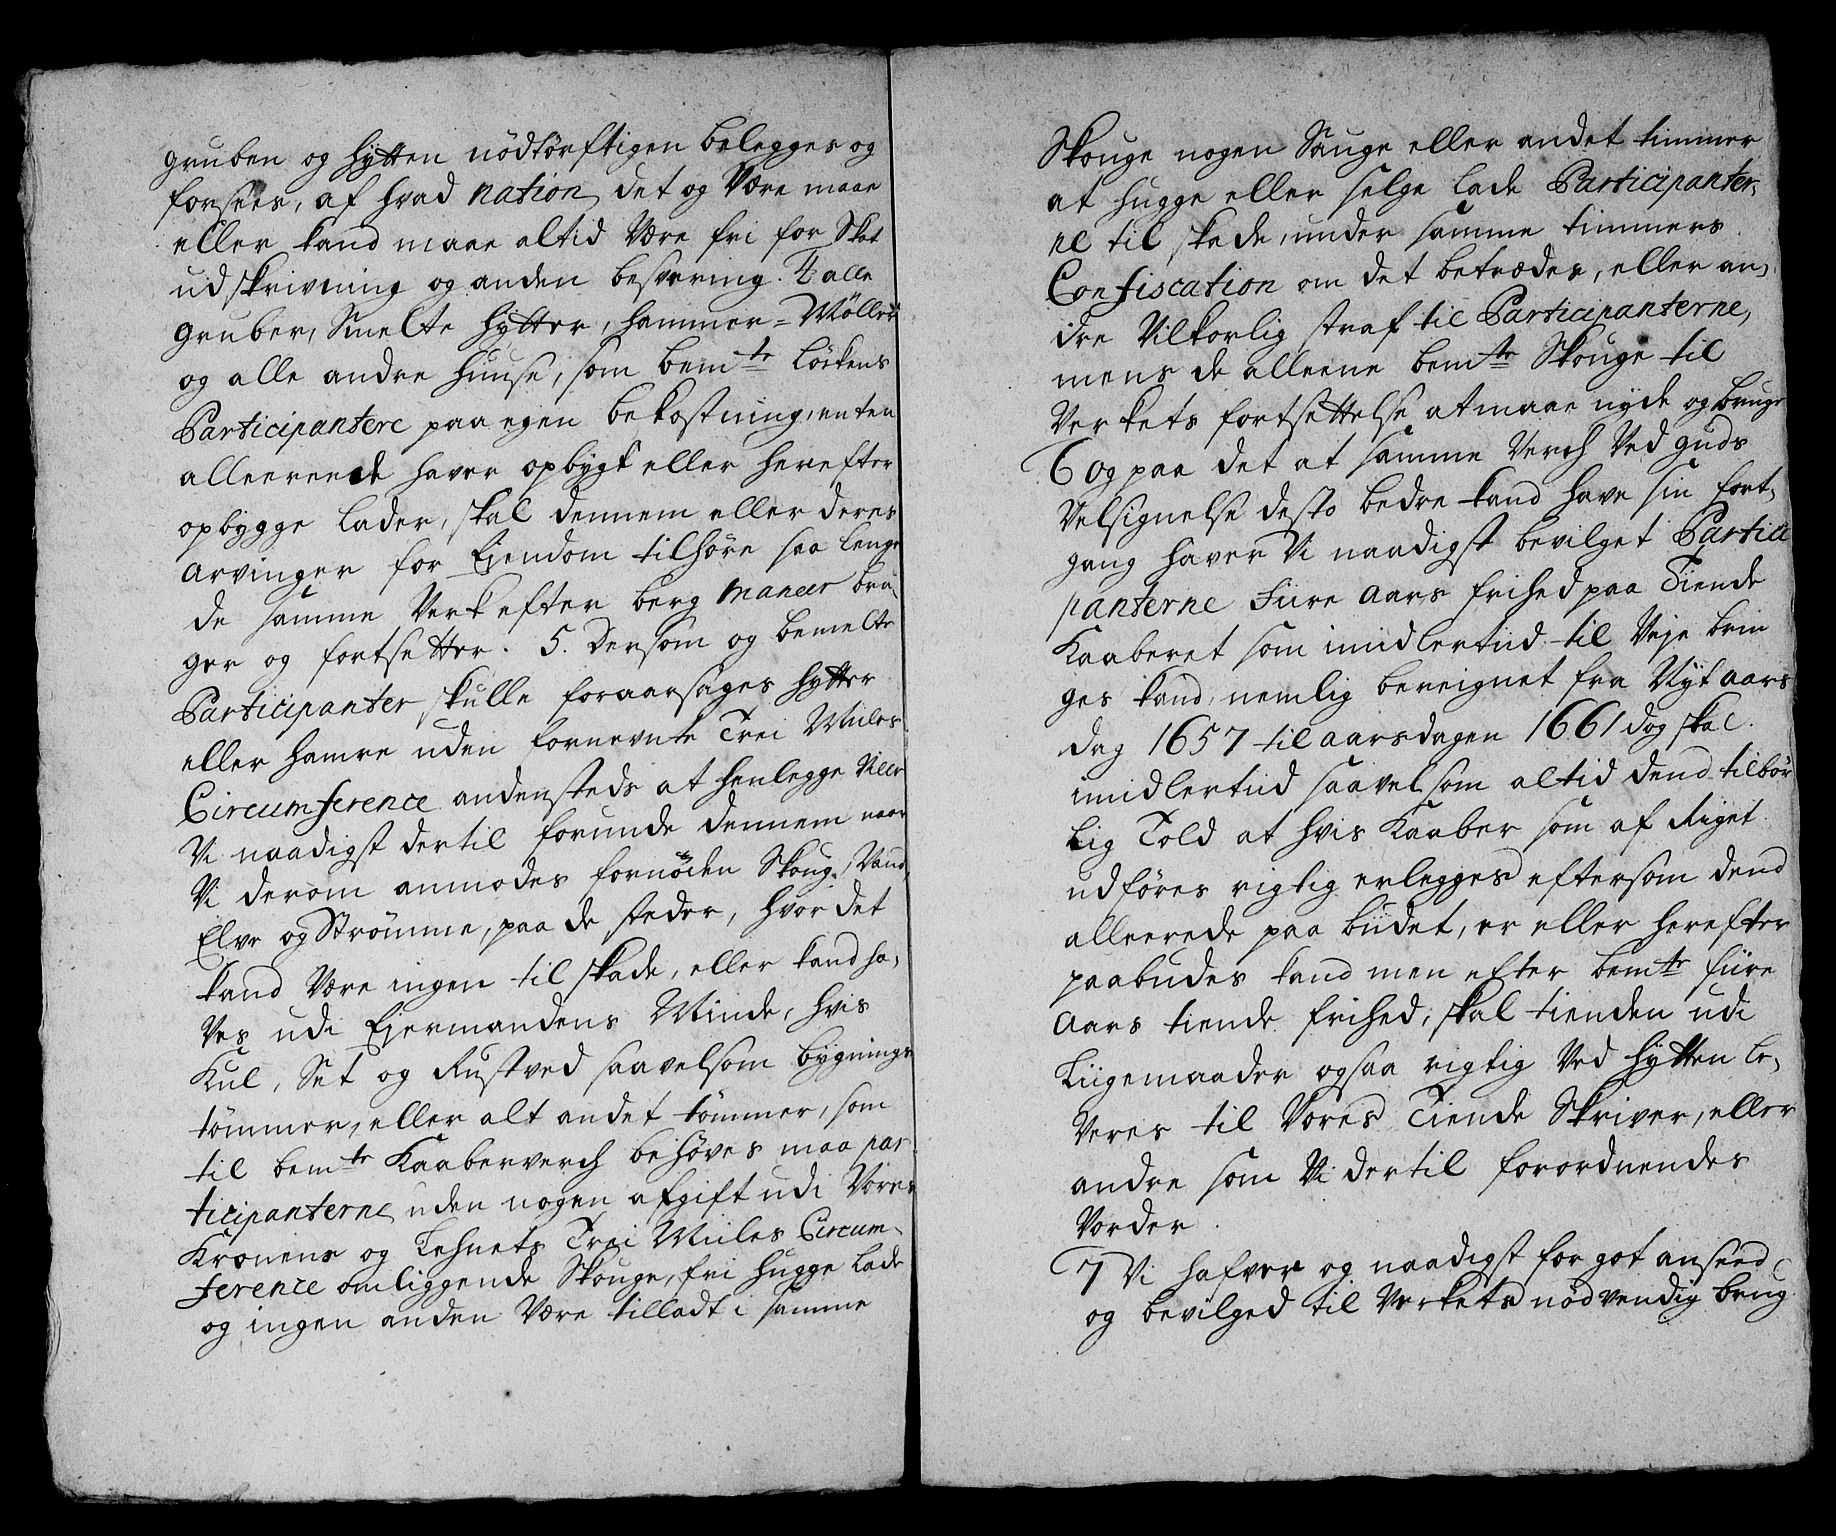 gruben og hytten nödtörftigen belegges og
forsees, af hvad nation det og Være maae
eller kand maae altid Være fri for Skat
udskrivning og anden besværing. 4 alle
gruber, Smelte hytter, hammer=Möller
og alle andre huuse, som bemte Löckens
Participantere paa egen bekostning, enten
alleereede haver opbygt eller herefter
opbygge lader, skal dennem eller deres
arvinger for Ejendom tilhöre saa lenge
de samme Verk efter berg maneer bru,
ger og fortsetter. 5. Dersom og bemelte
Participanter skulle foraarsages hytter
eller hamre uden fornevnte Trei Miiles
Circumference andensteds at henlegge Ville
Vi naadigst dertil forunde dennem naar
Vi derom anmodes fornöden Skoug, Vand,
Elve og Strömme, paa de steder, hvor det
kand Være ingen til skade, eller kand ha,
Ves udi Ejermandens Minde, hvis
Kul, Set og Rustved saavelsom bygnings
tömmer, eller alt andet tömmer, som
til bemte Kaaberverch behöves maa par
ticipanterne uden nogen afgift udi Vores
Kronens og Lehnets Trei Miiles Circum-
ference omliggende Skouge, fri hugge lade
og ingen anden Være tilladt i samme
Skouge nogen Sauge eller andet timmer
at hugge eller selge lade Participanter,
ne til skade, under samme timmers
Confiscation om det betrædes, eller an,
dre Vilkorlig straf til Participanterne,
mens de alleene bemte Skouge til
Verkets fortsettelse at maae nyde og bruge
6 og paa det at samme Verch Ved guds
Velsignelse desto bedre kand have sin fort,
gang haver Vi naadigst bevilget Partici
panterne Fiire aars frihed paa Tiende
Kaaberet som imidlertiid til Veje brin
ges kand, nemlig bereignet fra Nyt aars
dag 1657 til aarsdagen 1661 dog skal
imidlertiid saavel som altid dend tilbör
lig Told at hvis Kaaber som af Riget
udföres rigtig erlegges eftersom dend
alleerede paa biudet, er eller herefter
paabudes kand men efter bemte fiire
aars tiende frihed, skal tienden udi
Liigemaader ogsaa rigtig Ved hytten le,
Veres til Vores Tiende Skriver, eller
andre som Vi dertil forordnendes
Vorder.
7 Vi hafver og naadigst for got anseed
og bevilged til Verkets nödvendig brug